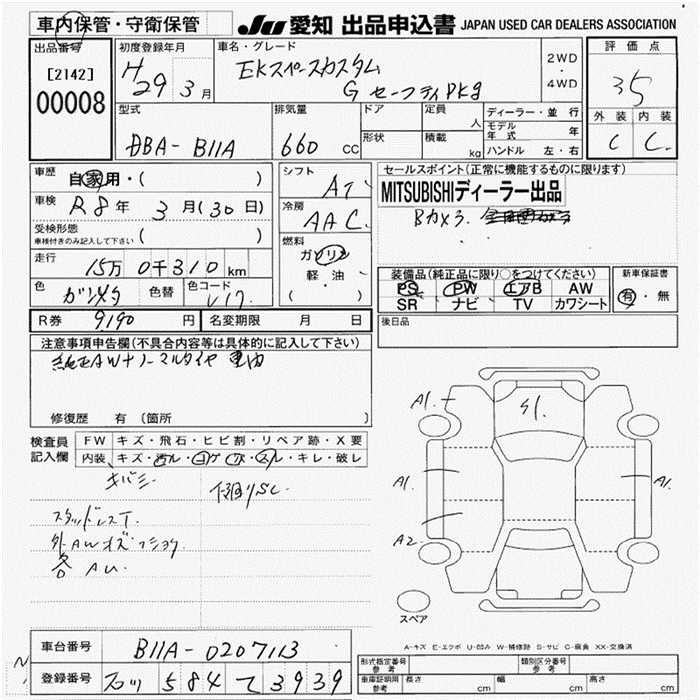 車内保管・守衛保管
JU 愛知 出品申込書 JAPAN USED CAR DEALERS ASSOCIATION
出品番号
[2142]
00008
初度登録年月
H29 3月
車名・グレード
EKスペースカスタム
G セーフティPKg
2WD
・
4WD
評価点
3.5
外装 内装
C C
型式
DBA-B11A
排気量
660 CC
ドア
形状
定員 人
積載 kg
ディーラー・並行
モデル年式 年
ハンドル 左・右
車歴 自家用・( )
車検 R8年 3月(30日)
受検形態
車検付きのみ記入して下さい ( )
走行 15万0千310km
色 ガンメタ 色替 色コード U17
シフト AT
冷房 AAC
燃料
ガソリン
軽・油
( )
セールスポイント(正常に機能するものに限ります)
MITSUBISHIディーラー出品
Bカメラ
装備品(純正品に限り○をつけてください)
PS PW エアB AW
SR ナビ TV カワシート
新車保証書
有・無
R券 9,190円 名変期限 月 日
後日品
注意事項申告欄(不具合内容等は具体的に記入して下さい)
純正AWナノーマルタイヤ 車内
修復歴 有 〔箇所 〕
検査員
記入欄
FW キズ・飛石・ヒビ割・リペア跡・X要
内装 キズ・汚ル・コゲ・穴・スレ・キレ・破レ
キバミ
下廻りSC
スタッドレスT
外AWキズ
各AU
A1 S1
A1 A1
A2
スペア
A-キズ E-エクボ U-凹み W-補修跡 S-サビ C-腐食 XX-交換済
車台番号 B11A-0207113
登録番号 584 て 3939
形式指定番号
参考
類別区分番号
参考
車庫証明用
参考
長さ cm 幅 cm 高さ cm